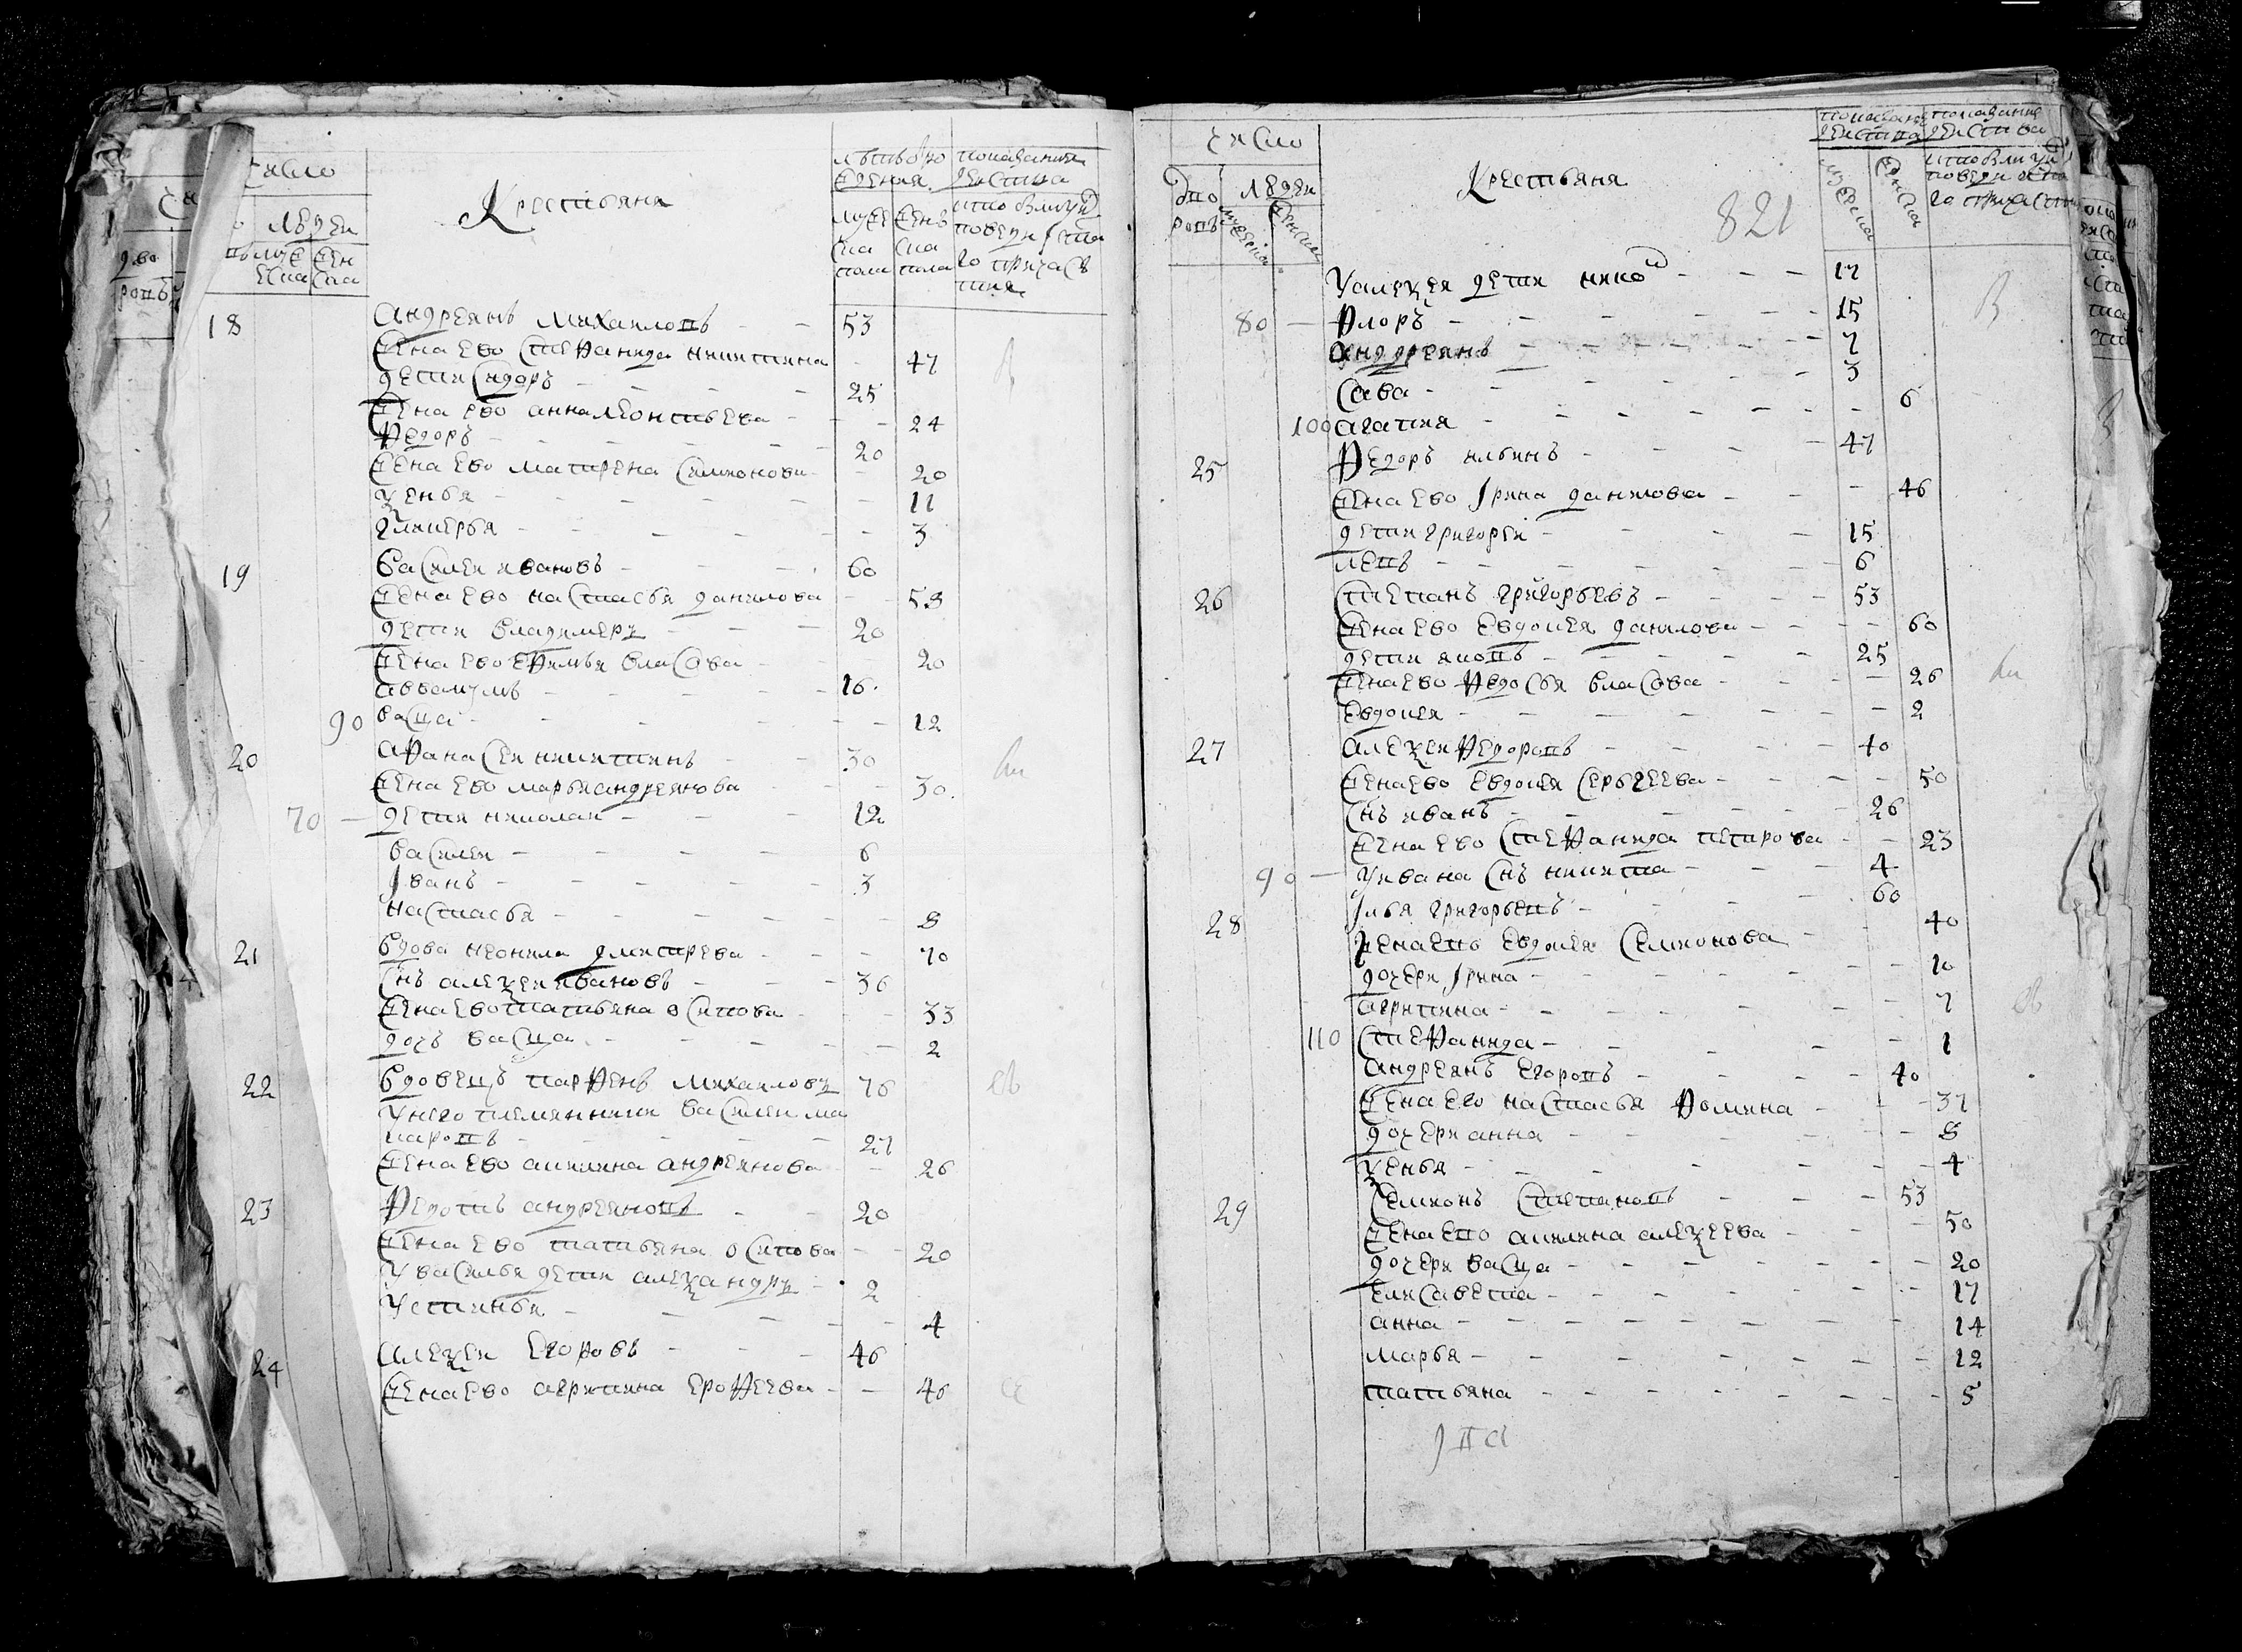 число
людей
Крестьяня
18 Андреянъ Михаиловъ - - 53
Жена ево Стефанида Никитина - 47
дети Сидоръ - - - 25
Жена ево анна Леонтьева - - 24
Федоръ - - - - 20
Жена ево Матрена Симионова - - 20
Ксенья - - - - 11
Гликерья - - - - 3
19 василеи ивановъ - - - 60
Жена ево настасья данилова - - 58
дети владимеръ - - - 20
Жена ево Ефимья власова - - 20
аввакумъ - - - - 16
90 васса - - - - 12
20 Афанасеи никитинъ - - 30
Жена ево марья андреянова - - 30
70 - дети николаи - - - 12
василеи - - - - 6
Iванъ - - - - 3
настасья - - - - 8
21 вдова неонила дмитрева - - - 70
Снъ алеѯеи ивановъ - - - 36
Жена ево татьяна осипова - - - 33
дочь васса - - - - 2
22 вдовецъ парфенъ михаиловъ 76
У него племянники василеи ма
каровъ - - - - - 27
Жена ево акилина андреянова - - 26
23 Федотъ андреяновъ - - 20
Жена ево татьяна осипова - - 20
У василья дети алеѯандръ - 2
Устинья - - - - 4
24 алеѯеи Егоровъ - - - 46
Жена ево агрипина Ерофеева - - 46
число
дво людеи
ровъ
Крестьяня
821
У алеѯея дети - - - 17
80 - Флоръ - - - - 15
андреянъ - - - - 7
Сава - - - - 3
100 агапия - - - - 6
25 Федоръ ильинъ - - - 47
Жена ево Iрина данилова - - - 46
дети григореи - - - 15
левъ - - - - 6
26 Степанъ григорьевъ - - - 53
Жена ево Евдокея данилова - - - 60
дети яковъ - - - - 25
Жена ево Федосья власова - - - 26
Евдокея - - - - 2
27 алеѯеи Федоровъ - - - 40
Жена ево Евдокея Сергеева - - - 50
Снъ иванъ - - - - 26
Жена ево Стефанида петрова - - 23
90 - У ивана снъ никита - - - 4
28 Iлья григорьевъ - - - 60
Жена евъ Евдокея Симионова - - 40
дочери Iрина - - - - 10
агрипина - - - - 7
110 Стефанида - - - - 1
андреянъ Егоровъ - - - 40
Жена ево настасья Фомина - - - 37
дочери анна - - - - 8
Ксенья - - - - 4
29 Симионъ Степановъ - - - 53
Жена ево акилина алеѯеева - - 50
дочери васса - - - - 20
Елисавета - - - - 17
анна - - - - 14
марья - - - - 12
татьяна - - - - 5